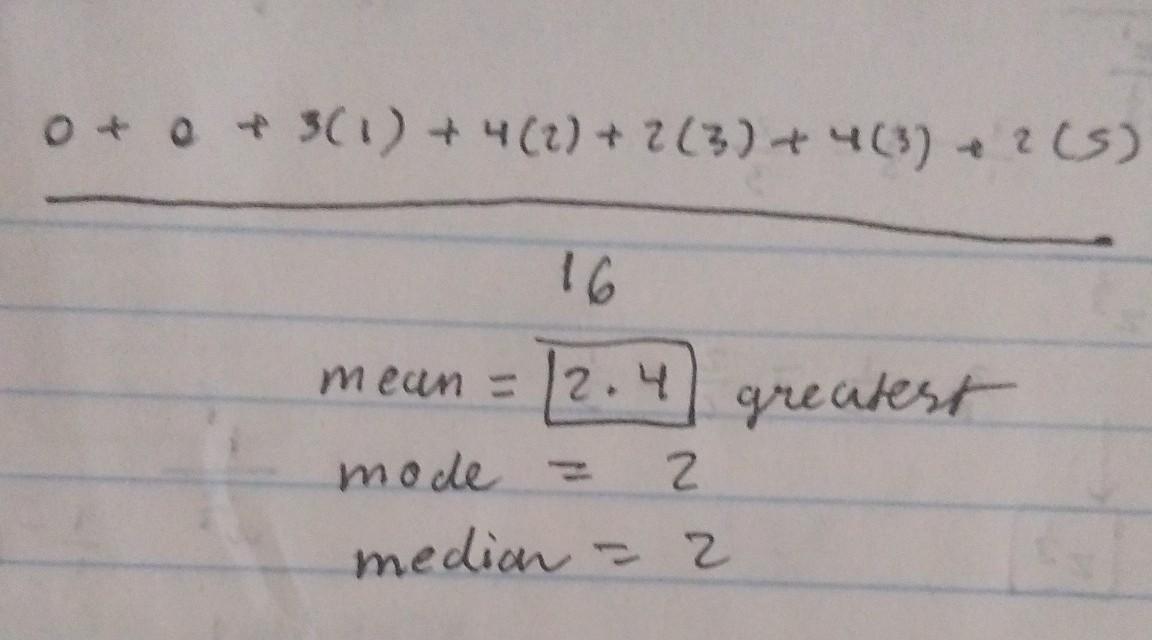 0 + 0 + 3(1) + 4(2) + 2(3) + 4(3) + 2(5)
16
mean = 2.4 greatest
mode = 2
median = 2